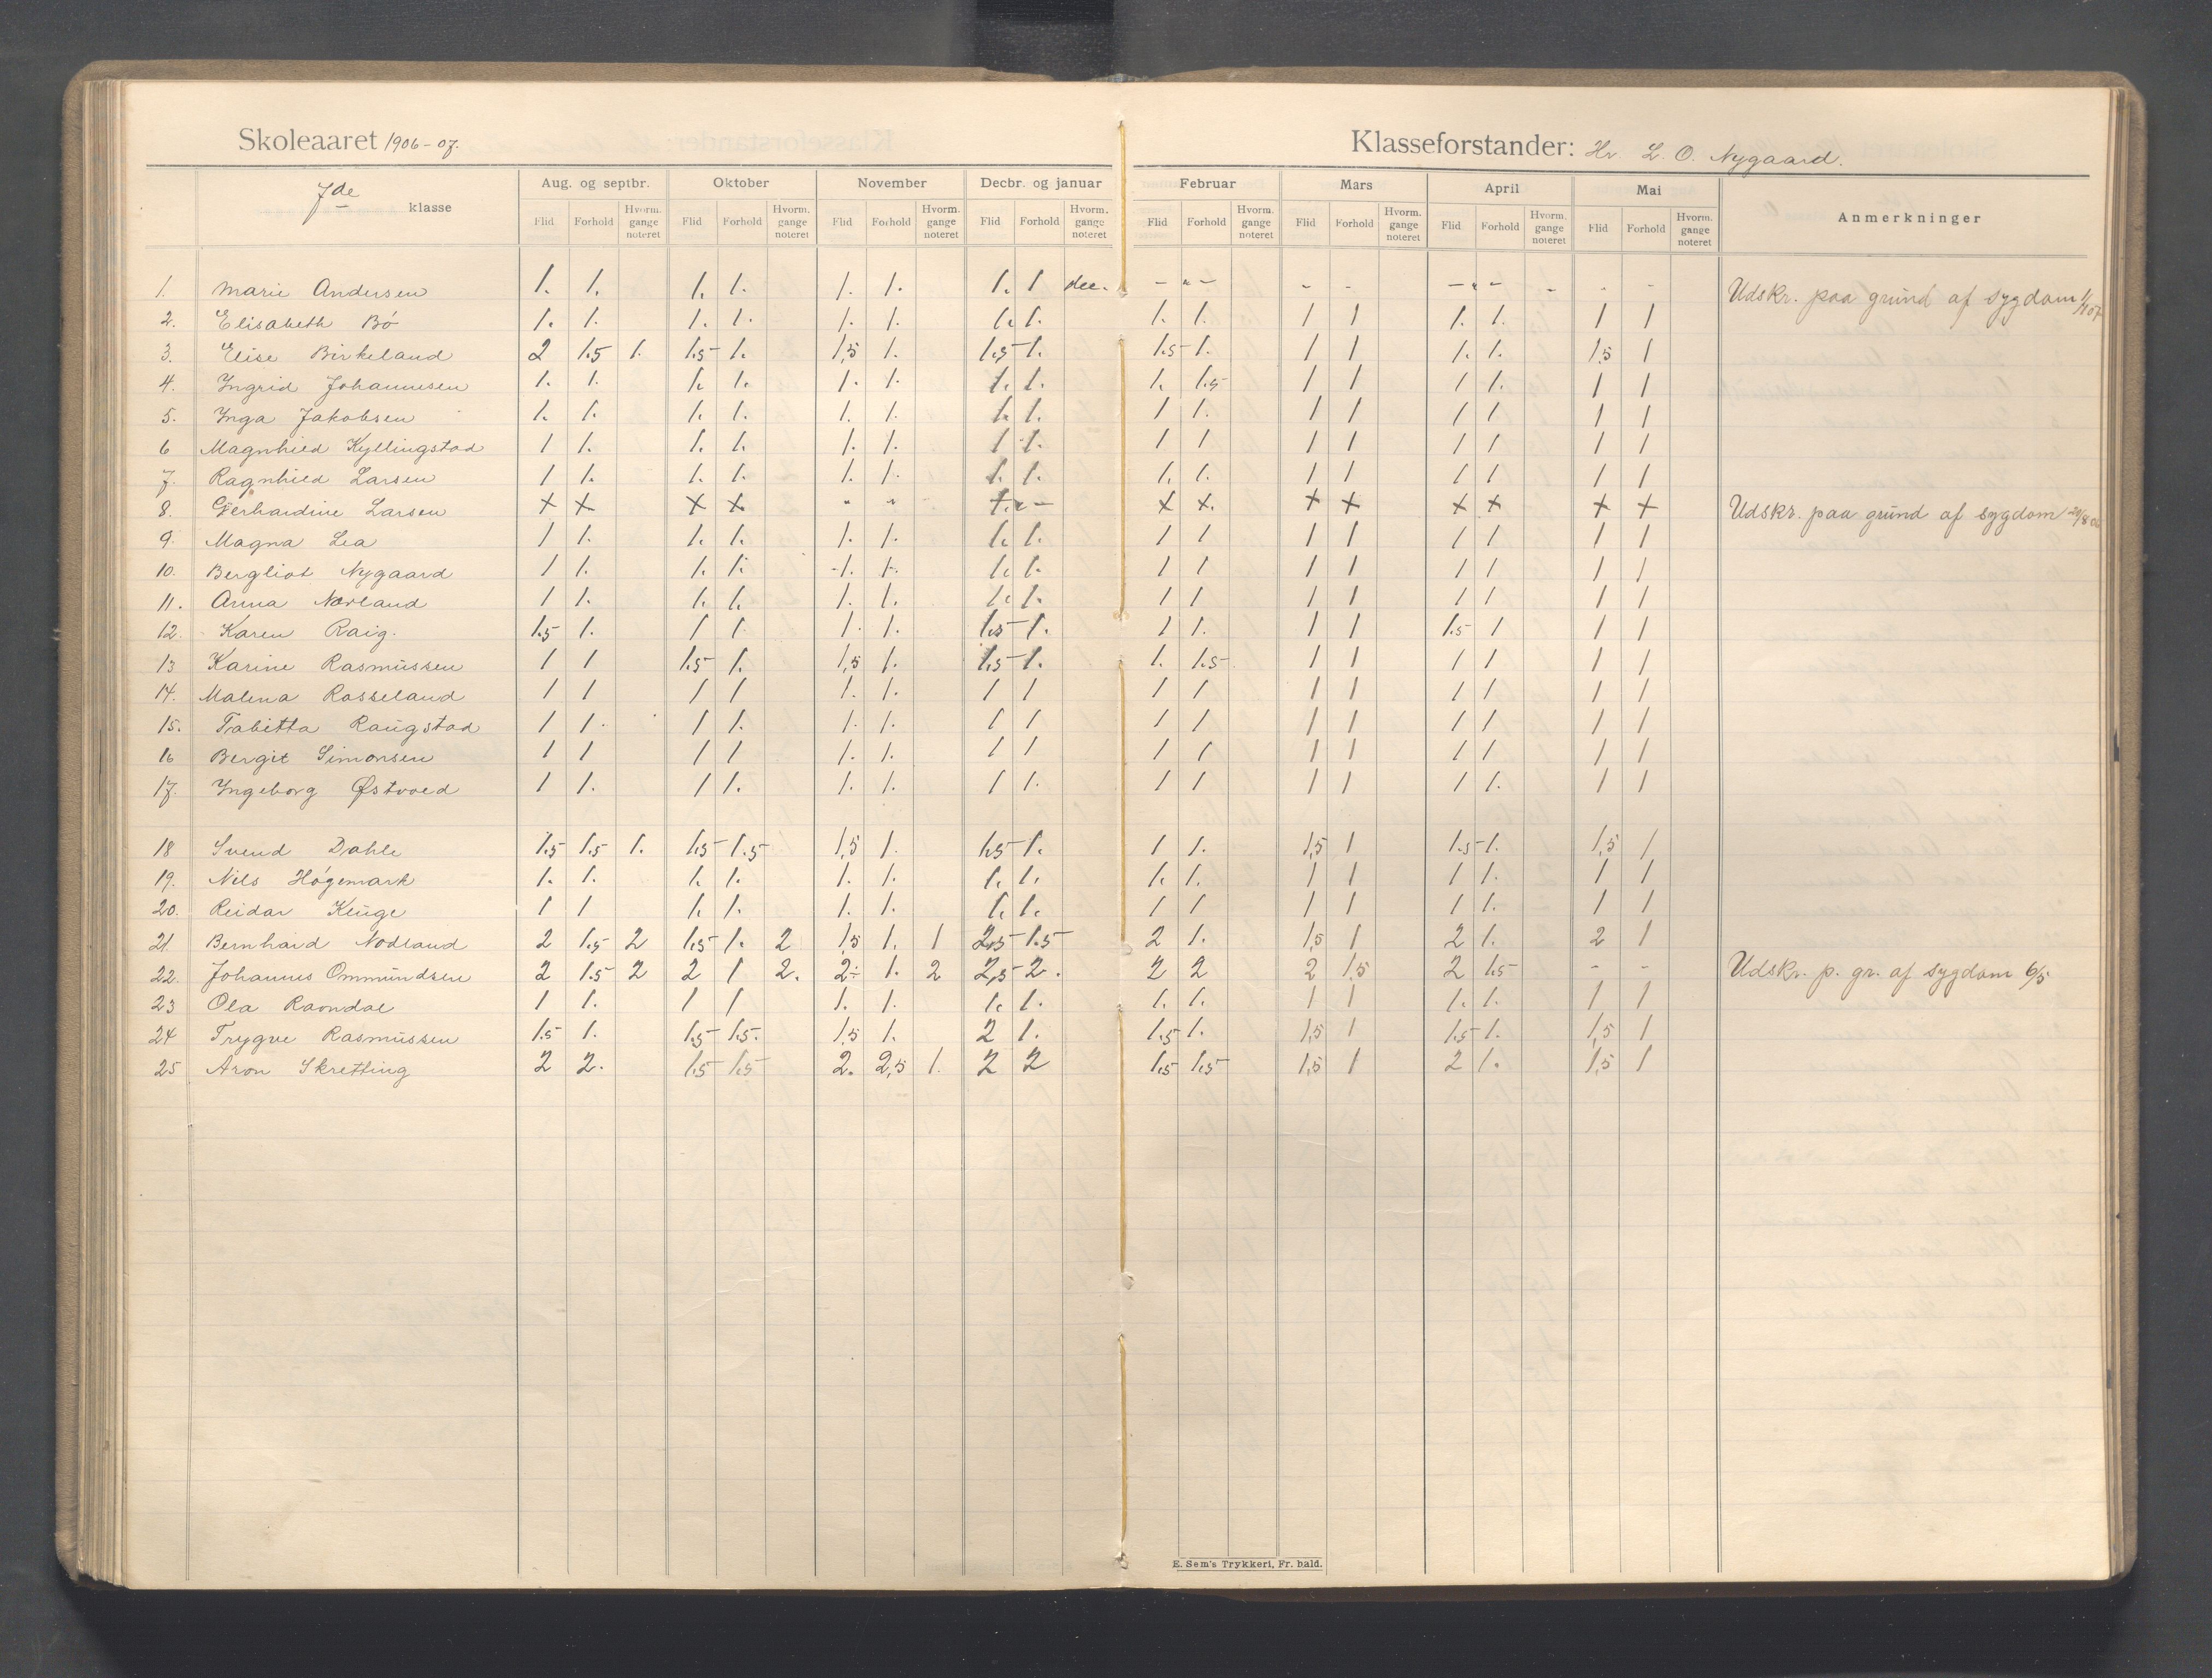 Skoleaaret 1906-07. Klasseforstander: Hr L. O. Nygaard.
7de klasse
Aug. og septbr. Oktober November Decbr. og januar Februar Mars April Mai Anmerkninger
Flid Forhold Hvorm. gange noteret Flid Forhold Hvorm. gange noteret Flid Forhold Hvorm. gange noteret Flid Forhold Hvorm. gange noteret Flid Forhold Hvorm. gange noteret Flid Forhold Hvorm. gange noteret Flid Forhold Hvorm. gange noteret Flid Forhold Hvorm. gange noteret
1. Marie Andersen 1. 1. 1. 1. 1. 1. 1. 1 dec. - " - - - - " - - - - Udskr. paa grund af sygdom 1/1 07
2. Elisabeth Bó 1. 1. 1. 1. 1. 1. 1. 1. 1. 1. 1 1 1. 1. 1 1
3. Elise Birkeland 2 1.5 1. 1.5 1. 1,5 1. 1.5 1. 1.5 1. 1 1 1. 1. 1.5 1
4. Ingrid Johannesen 1. 1. 1. 1. 1. 1. 1. 1. 1. 1.5 1 1 1 1. 1 1
5. Inga Jakobsen 1. 1. 1. 1. 1. 1. 1. 1. 1 1. 1 1 1 1 1 1
6 Magnhild Kyllingstad 1 1. 1. 1. 1. 1. 1 1. 1 1 1 1 1 1 1 1
7. Ragnhild Larsen 1 1. 1. 1. 1. 1. 1. 1. 1. 1. 1 1 1 1 1 1
8. Gerhardine Larsen + + + + " " +. " - + +. + + + + + + Udskr. paa grund af sygdom
9. Magna Lea 1 1. 1. 1. 1. 1. 1. 1. 1 1 1 1 1 1 1 1
10. Bergliot Nygaard 1 1. 1. 1. 1. 1. 1. 1. 1 1 1 1 1 1 1 1
11. Anna Nærland 1 1. 1. 1. 1. 1. 1. 1. 1 1 1 1 1 1 1 1
12. Karen Raig. 1.5 1. 1 1 1. 1. 1.5 1. 1 1. 1 1 1.5 1 1 1
13 Karine Rasmüssen 1 1 1.5 1. 1,5 1. 1.5 1. 1. 1.5 1 1 1 1 1 1
14. Malena Rosseland 1 1 1 1 1. 1. 1 1 1 1 1 1 1 1 1 1
15. Tabitta Raugstad 1 1. 1 1. 1. 1. 1 1 1 1 1 1 1 1 1 1
16 Bergit Simonsen 1 1 1 1 1. 1. 1 1 1 1 1 1 1 1 1 1
17. Ingeborg Østvold 1 1. 1 1. 1. 1. 1 1. 1 1 1 1 1 1. 1 1
18 Svend Dahle 1.5 1.5 1. 1.5 1.5 1,5 1. 1.5 1. 1 1. 1,5 1 1.5 1. 1,5 1
19. Nils Högemark 1. 1. 1. 1. 1. 1. 1. 1. 1. 1. 1 1 1 1. 1 1
20. Reidar Kluge 1 1 1. 1. 1. 1. 1. 1. 1 1 1 1 1 1. 1 1
21. Bernhard Nodland 2 1.5 2 1.5 1. 2 1,5 1. 1 2,5 1.5 2 1. 1,5 1 2 1. 2 1
22. Johannes Ommündsen 2 1.5 2 2 1 2. 2- 1. 2 2,5 2. 2 2 2 1,5 2 1.5 - - Udskr. p. gr. af sygdom 6/5
23 Ola Ravndal 1 1. 1 1 1. 1. 1. 1. 1. 1. 1 1 1. 1. 1 1
24 Trygve Rasmüssen 1.5 1. 1.5 1.5. 1,5 1. 2 1. 1.5 1. 1,5 1 1.5 1. 1,5 1
25 Aron Skretting 2 2. 1.5 1.5 2. 2,5 1. 2 2 1.5 1.5 1,5 1 2 1. 1,5 1
E. Sem's Trykkeri, Fr. hald.